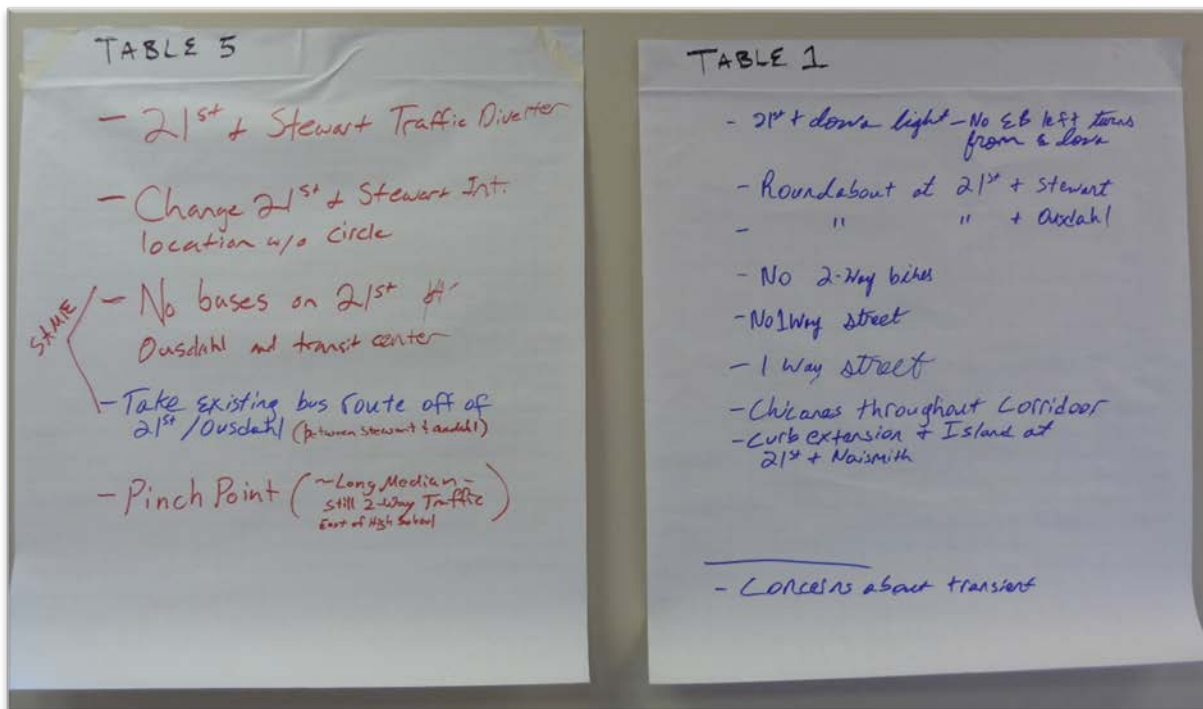 TABLE 5
- 21st + Stewart Traffic Diverter
- Change 21st + Stewart Int.
location w/o circle
SAME
- No buses on 21st
Ousdahl and transit center
- Take existing bus route off of
21st / Ousdahl (between Stewart & ousdahl)
- Pinch Point ( ~Long Median -
Still 2-Way Traffic
East of High School )
TABLE 1
- 21st + Iowa light - No EB left turns
from Iowa
- Roundabout at 21st + Stewart
- " " + Ousdahl
- No 2-Way bikes
- No 1 Way street
- 1 Way street
- Chicanes throughout Corridor
- Curb extension + Island at
21st + Naismith
- Concerns about transient